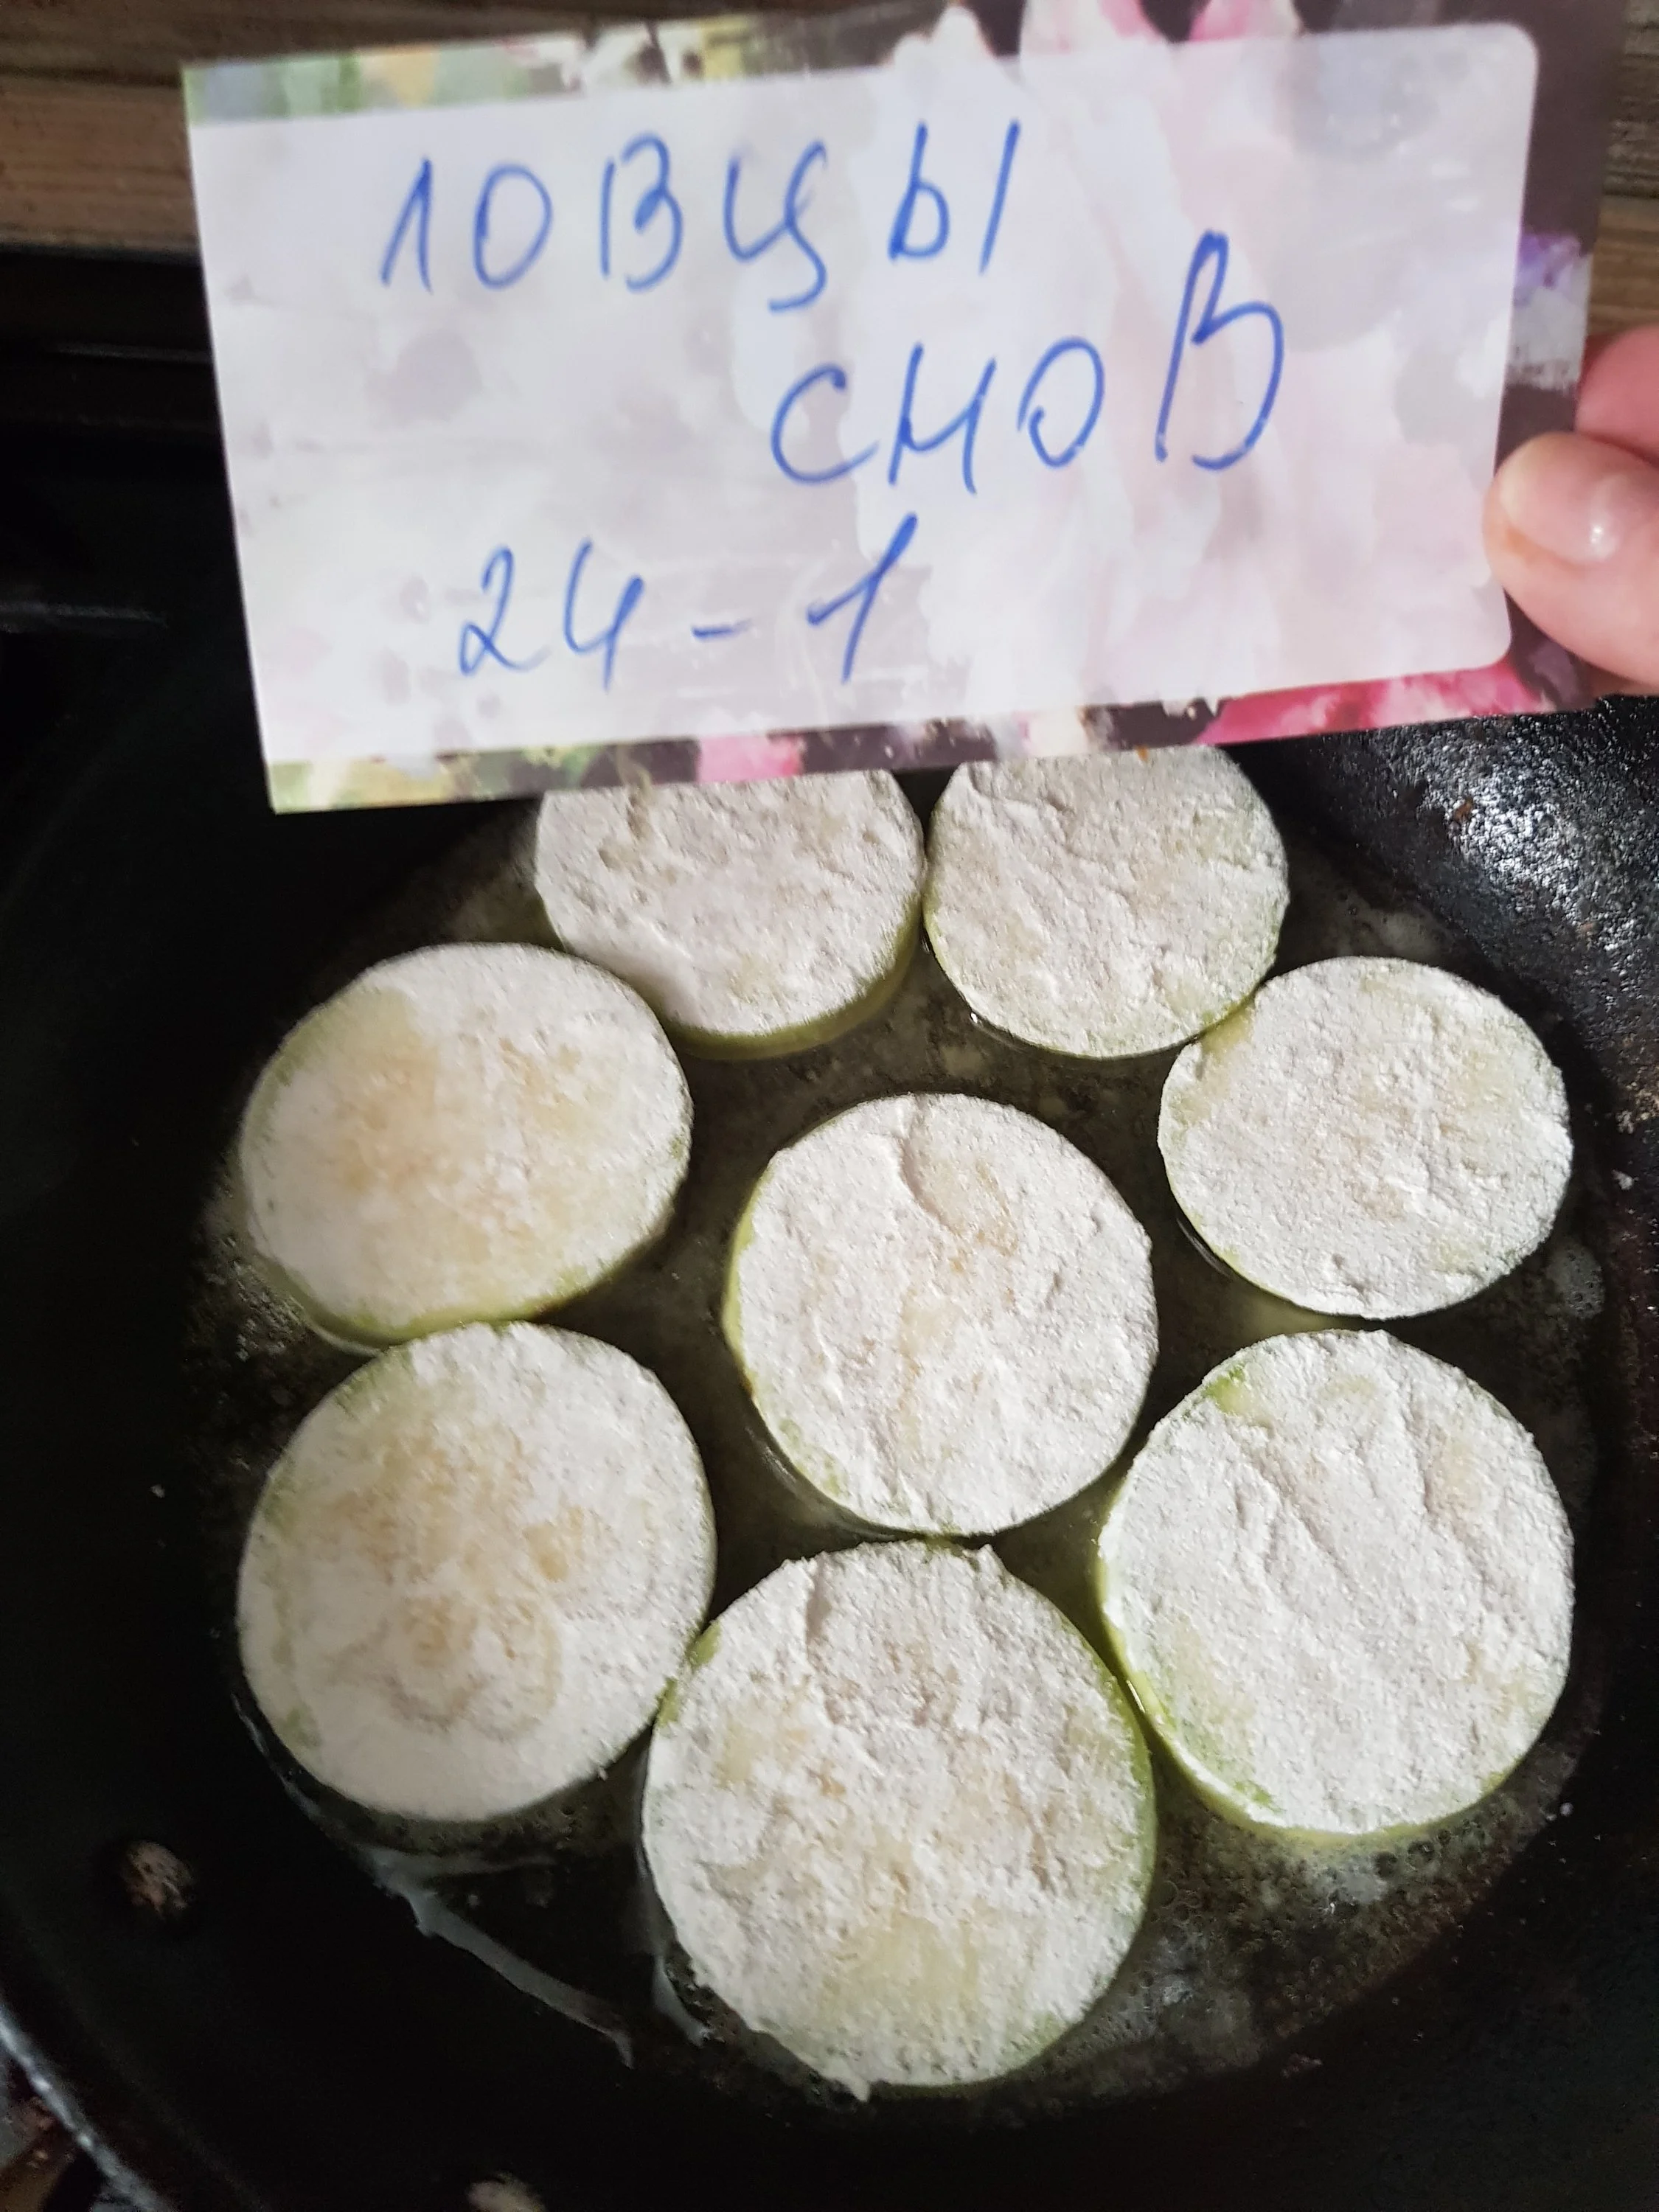 ловцы
снов
24-1